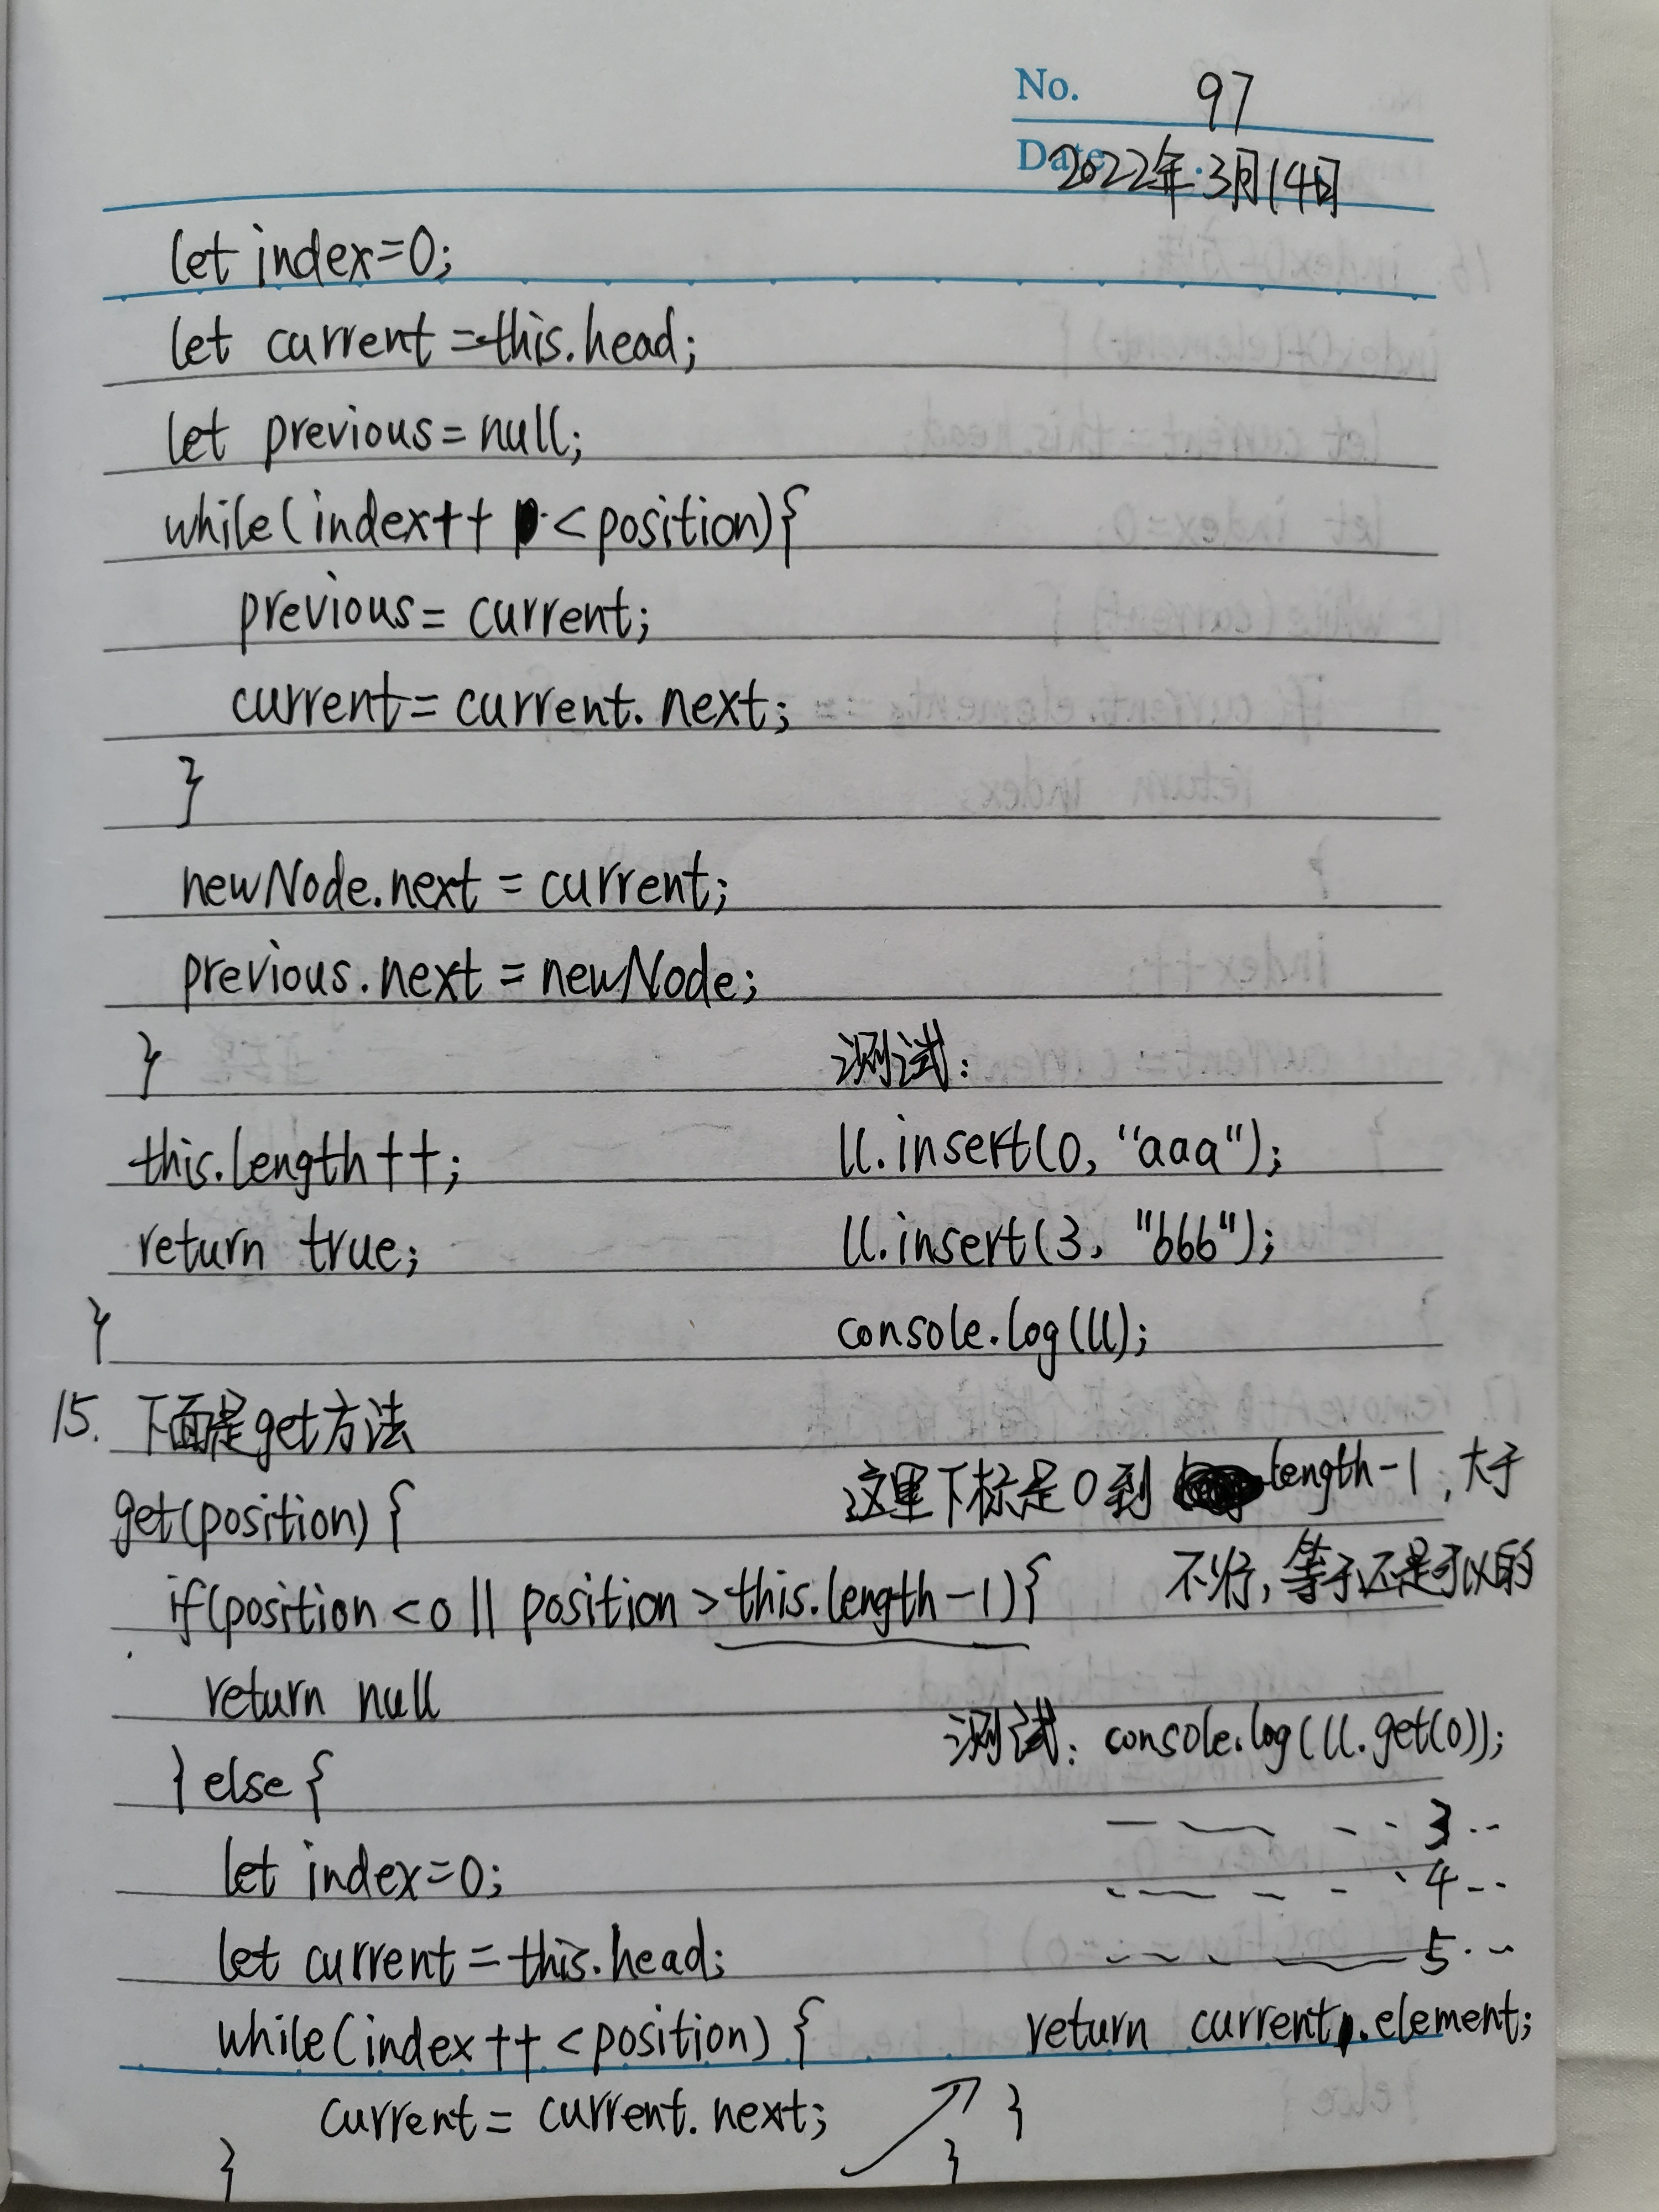 No. 97
Date 2022年3月14日
let index=0;
let current=this.head;
let previous=null;
while(index++ <position){
previous=current;
current=current.next;
}
newNode.next=current;
previous.next=newNode;
}
this.length++;
return true;
}
测试:
ll.insert(0, "aaa");
ll.insert(3, "bbb");
console.log(ll);
15. 下面是get方法
get(position){
if(position<0 || position>this.length-1){
return null
}else{
let index=0;
let current=this.head;
while(index++<position){
current=current.next;
}
这里下标是0到length-1,大于
不行,等于还是可以的
测试: console.log(ll.get(0));
3
4
5
return current.element;
}
}